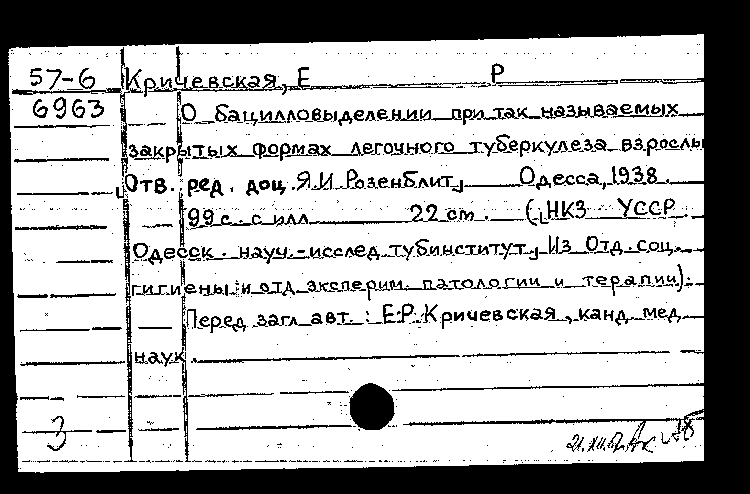 57-6 Кричевская, Е Р
6963 О бацилловыделении при так называемых
закрытых формах легочного туберкулеза взрослы
[Отв. ред. доц. Я.И Розенблит] Одесса, 1938.
99 с. с илл 22 cm. ([НКЗ УССР
Одесск. науч.-исслед. тубинститут] Из Отд. соц.
гигиены и отд. эксперим. патологии и терапии).
Перед загл авт.: Е.Р. Кричевская, канд мед
наук.
3